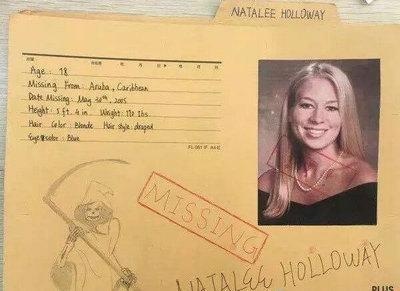 NATALEE HOLLOWAY
Age : 18
Missing From : Aruba, Caribbean
Date Missing: May 30th, 2005
Height: 5 ft. 4 in Weight: 110 lbs
Hair Color: Blonde Hair style: draped
Eye color: Blue
MISSING
NATALEE HOLLOWAY
PLUS